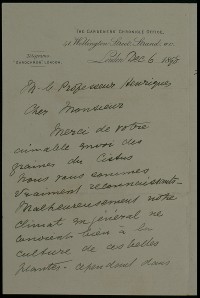 THE GARDENERS' CHRONICLE OFFICE,
41 Wellington Street, Strand, W.C.
Telegrams
"GARDCHRON" LONDON.
London Dec 6 189
M. le Professeur Henriques
Cher Monsieur
Merci de votre
aimable envoi des
graines du Cistus
Nous vous sommes
vraiment reconnaissants.
Malheureusement notre
climat en général ne
convient bien à la
culture de ces belles
plantes - cependant dans